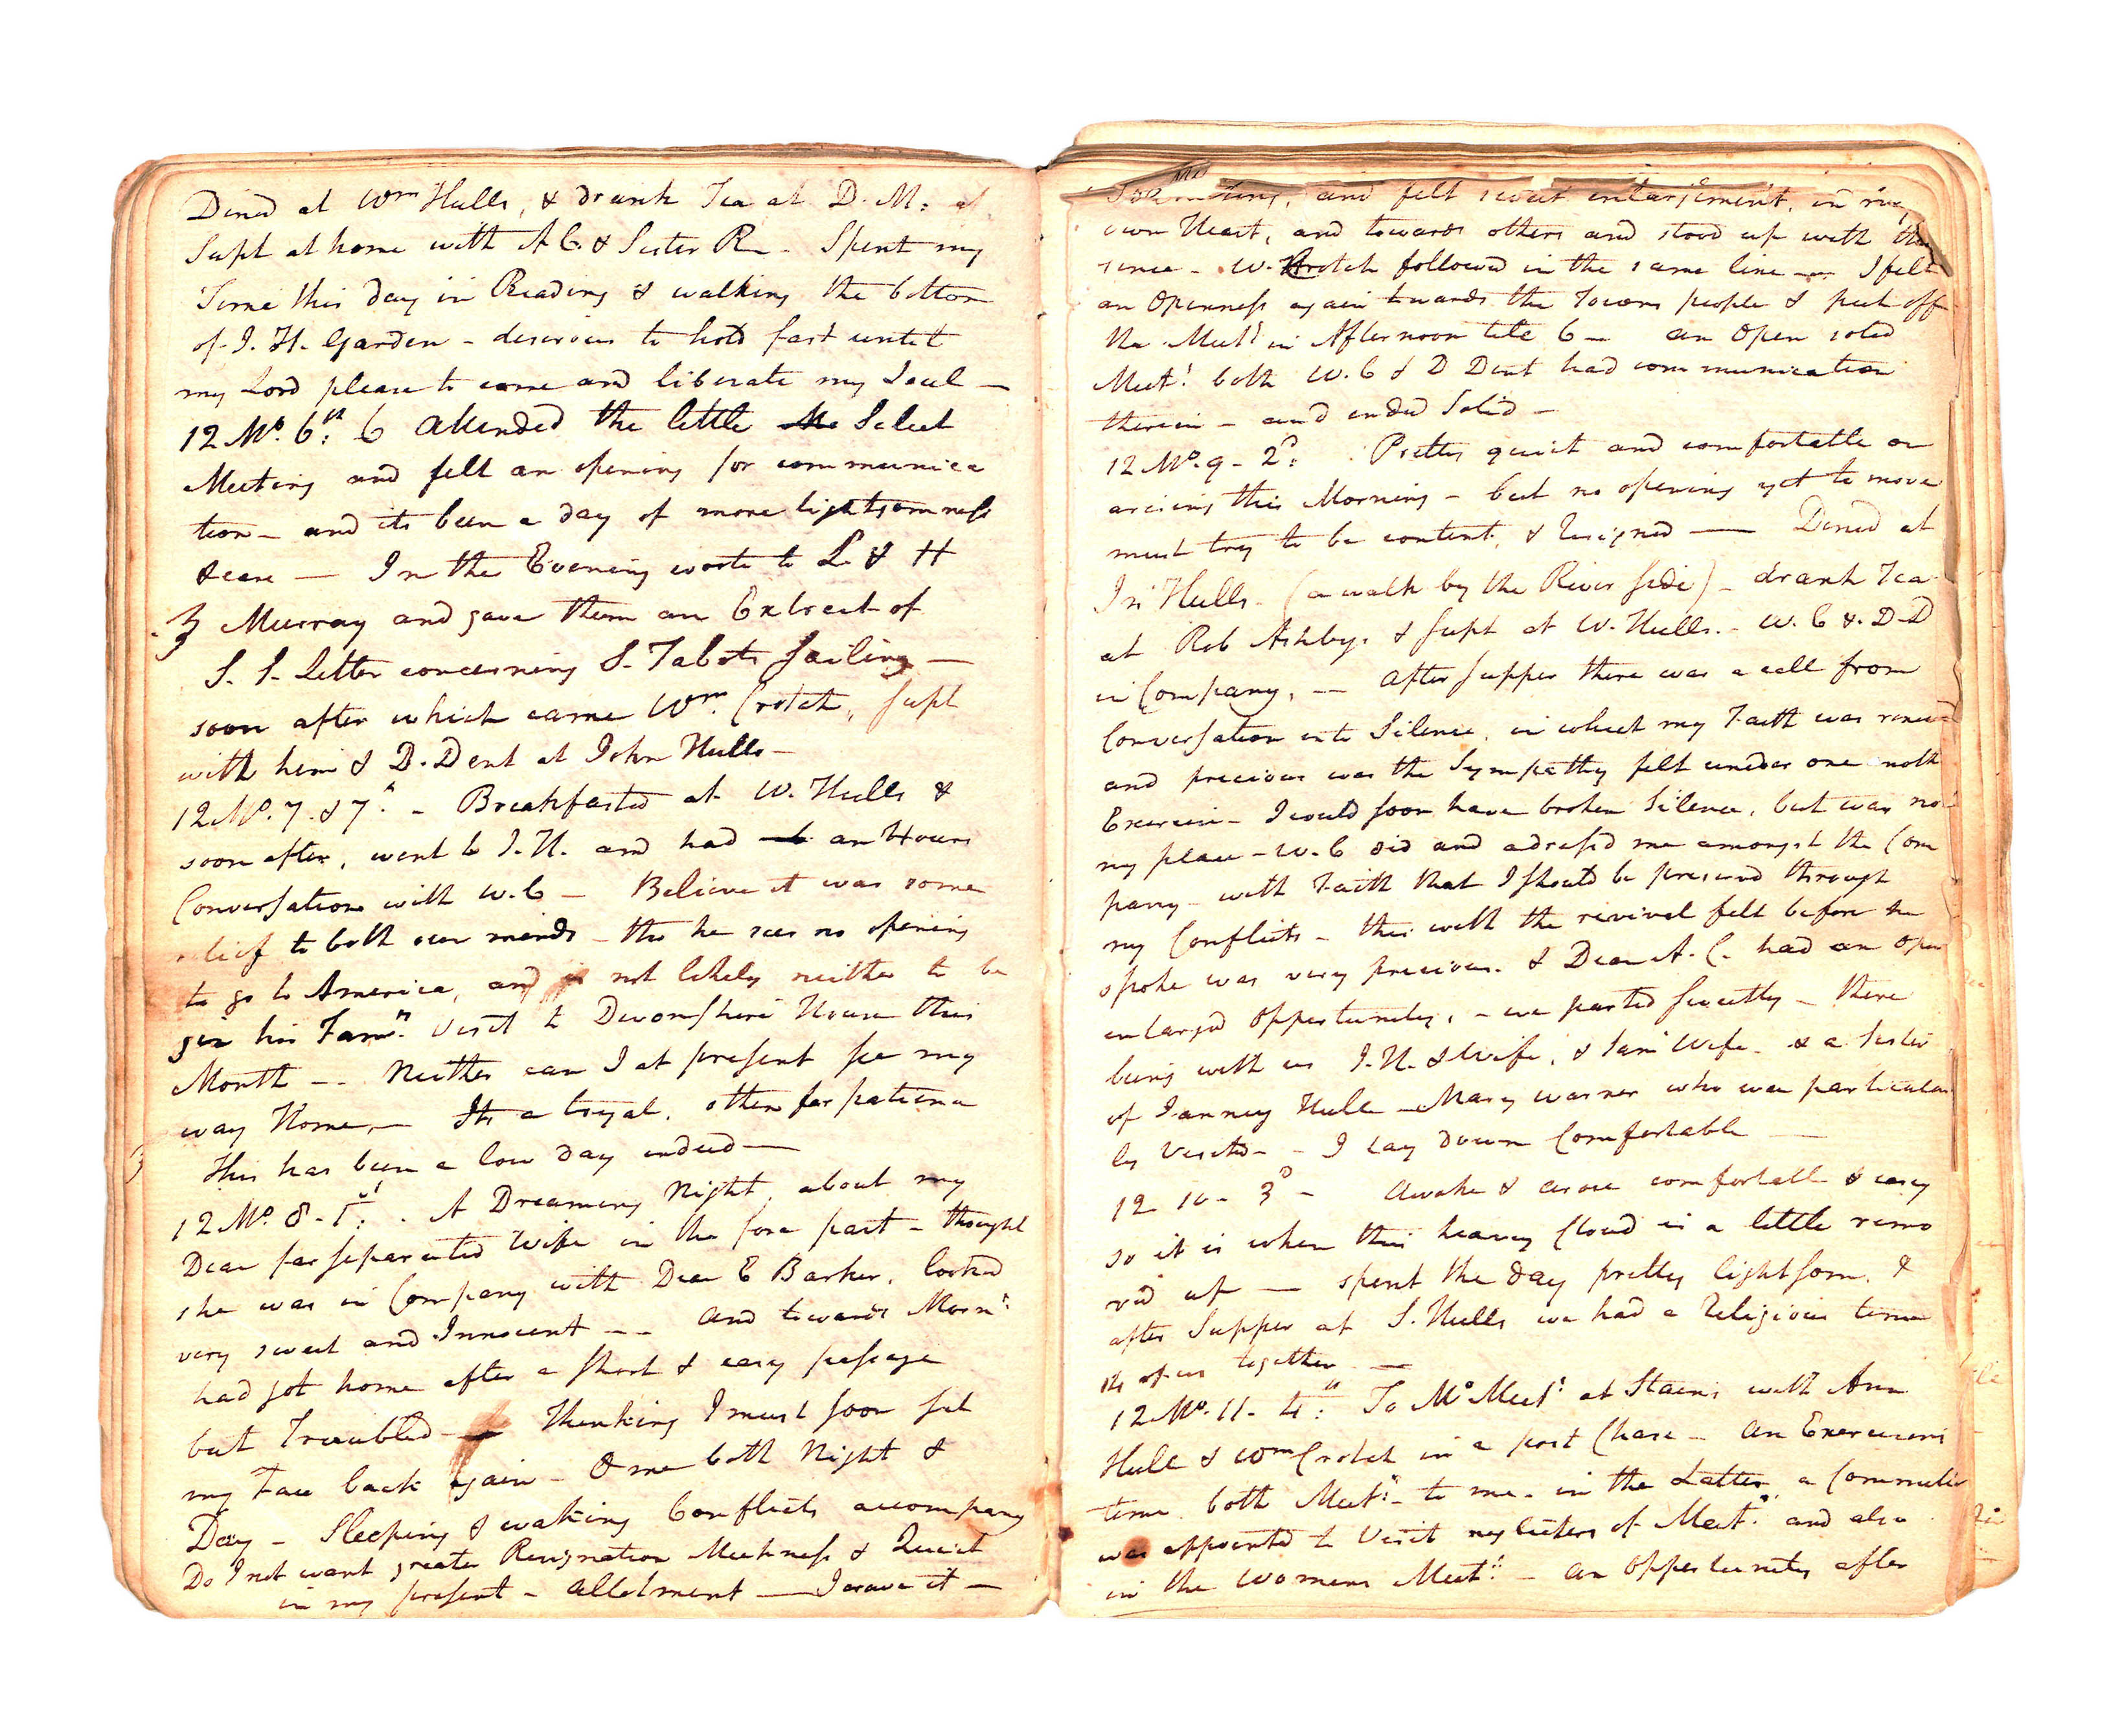 Dined at Wm Hulls, & drank Tea at D. M: at
Supt at home with A C. & Sister R - Spent my
Time this day in Reading & walking the bottom
of J. H. Garden - desirous to hold fast untill
my Lord please to come and liberate my Soul -
12 Mo. 6th: 6 Attended the little Select
Meeting and felt an opening for communica
tion - and its been a day of more lightsomness
& ease - In the Evening wrote to L. & H
Murray and gave them an Extract of
S. S. Letter concerning S. Tabots Sailing -
soon after which came Wm. Crotch, Supt
with him & D. Dent at John Hulls -
12 Mo. 7. & 7th - Breakfasted at W. Hulls &
soon after, went to J. H. and had an Hours
Conversation with W. C - Believe it was some
relief to both our minds - tho he sees no opening
to go to America, and is not likely neither to be
gin his Famy. Visit to Devonshire House this
Month -- Neither can I at present see my
way Home, - Its a tryal,
This has been a low day indeed -
12 Mo. 8 - 1st: . A Dreaming Night, about my
Dear far separated Wife in the fore part - thought
she was in Company with Dear E Barker, looked
very sweet and Innocent -- And towards Morng:
had got home after a short & easy passage
but Troubled - Thinking I must soon set
my Face back again - O me both Night &
Day - Sleeping & waking Conflicts accompany
Do I not want greater Resignation Meekness & Quiet
in my present - allotment - I crave it -
and felt sweet enlargement, in my
own Heart, and towards others and stood up with the
sence - W. Crotch followed in the same line - I felt
an Openness again towards the Towns people & put off
the Meetg in Afternoon till 6 - an Open solid
Meetg: both W. C & D Dent had communication
therein - and ended Solid -
12 Mo. 9 - 2d: . Pretty quiet and comfortable on
arising this Morning - but no opening yet to move
must try to be content, & Resigned - Dined at
Jn Hulls - (a walk by the River side) - drank Tea
at Rob Ashbys & Supt at W. Hulls. - W. C & D. D
in Company, - After supper there was a call from
Conversation into Silence, in which my Faith was renewd
and precious was the Sympathy felt under one anoth
Exercise - I would soon have broken Silence, but was not
my place - W. C did and adressd me amongst the Com
pany - with Faith that I should be preserved through
my Conflicts - this with the revival felt before he
spoke was very precious. & Dear A. C. had an open
enlarged Oppertunity, - we parted sweetly - there
being with us J. H. & Wife, & Sam Wife - & a Sister
of Fanney Hull - Mary Warner who was particular
ly Visited - - I lay down Comfortable -
12 10 - 3d - Awoke & arose comfortable & easy
so it is when this heavy Cloud is a little remo
vd up - spent the day pretty lightsom. &
after Supper at J. Hulls we had a Religious time
14 of us together -
12 Mo. 11 - 4th: To Mo Meetg: at Stains with Ann
Hull & Wm Crotch in a post Chase - An Exercising
time both Meetgs - to me - in the Latter, a Committe
was appointed to Visit neglecters of Meetgs and also
in the Womens Meetg: - An Oppertunity after